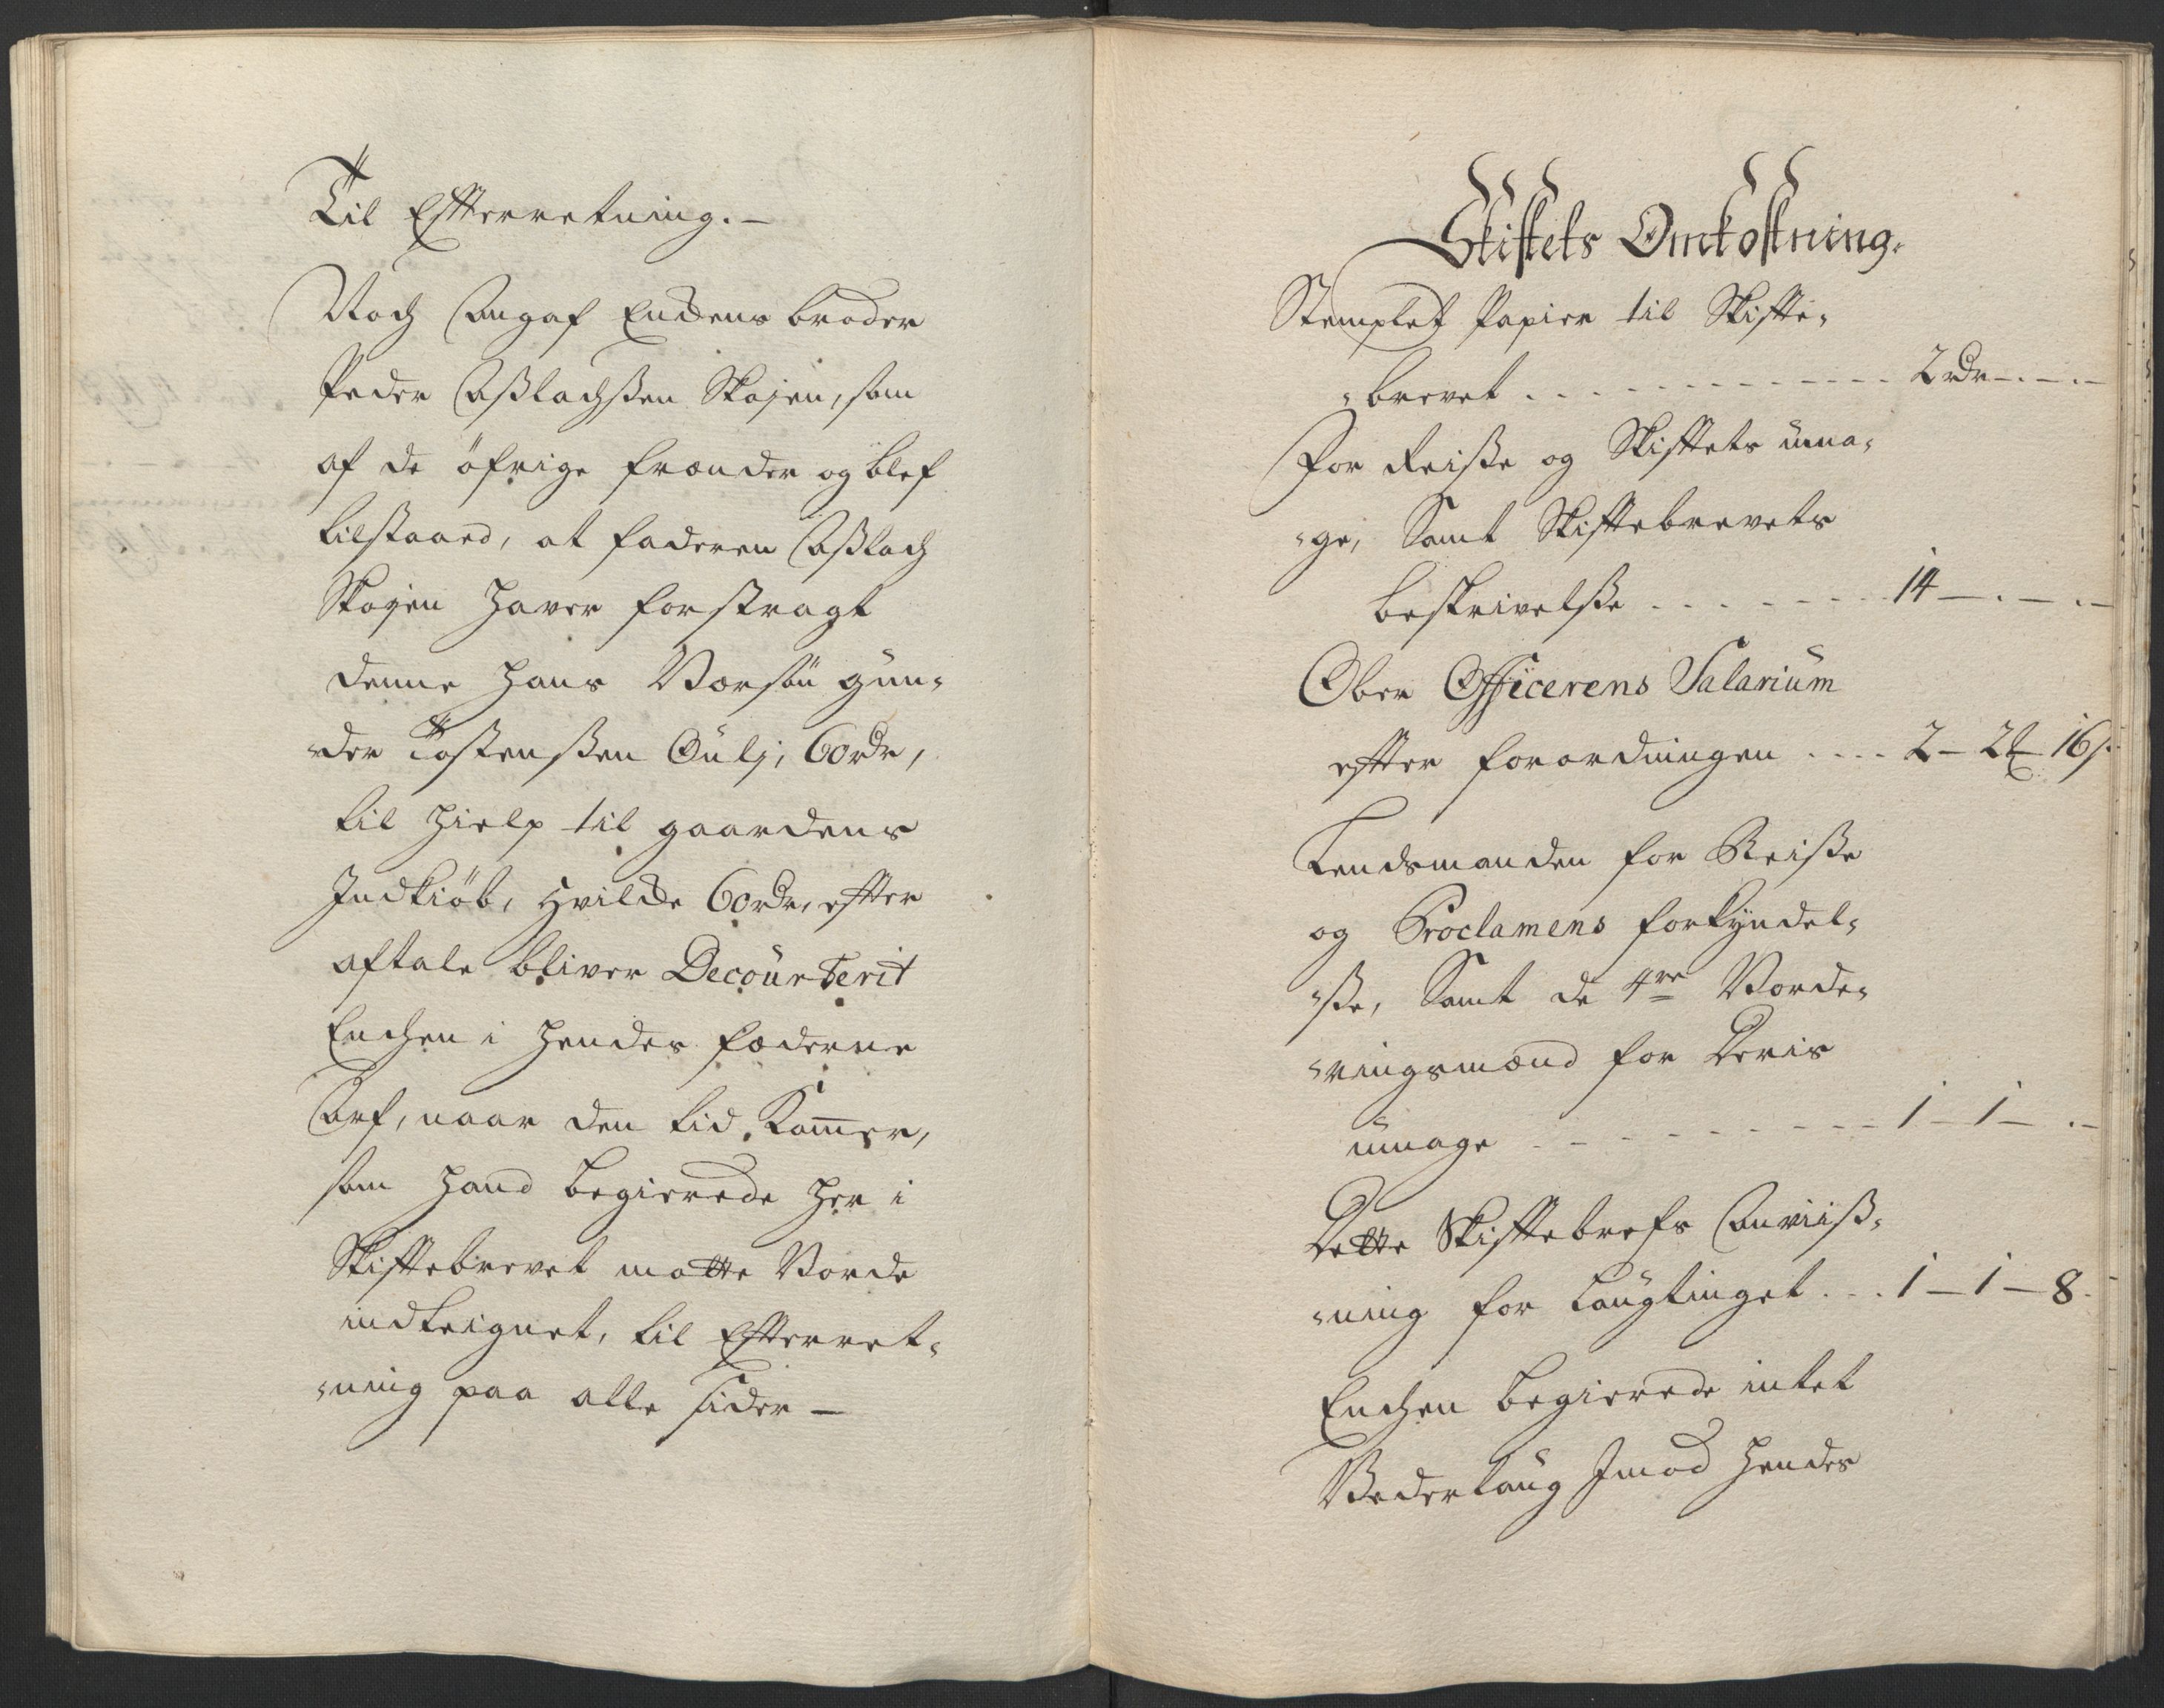 Til Efterretning. –
Noch Angaf Enckens broder
Peder Aßlachsßen Skajen, som
af de öfrige frænder og blef
tilstaaed, at faderen Aßlach
Skajen haver forstragt
denne hans Værsøn gun-
-der Tostensßen Gulj, 60rdr,
til hielp til gaardens
Indkiöb, hvilcke 60rdr, efter
aftale bliver Decourterit
Enchen i hendes fæderne
Arf, naar den tid kommer,
som hand begierede her i
Skiftebrevet motte Vorde
indteignet, til Efterret-
-ning paa alle sider –
Skiftets Omkostning.
Stemplet Papier til Skifte-
-brevet . . . 2rdr – . – . –
For Reiße og Skiftets uma-
-ge, Samt Skiftebrevets
beskrivelße . . . 14 – . – . –
Ober Officerens Salarium
efter forordningen . . . . 2 – 2 – 16s.
Lendsmanden for Reiße
og Proclamens forkyndel-
-ße, Samt de 4re Vorde-
-ringsmænd for Deris
umage . . . 1 – 1 – . –
Dette Skiftebrefs Anviiß-
-ning for Laugtinget . . . 1 – 1 – 8.
Enchen begierede intet
Vederlaug Imod hendes